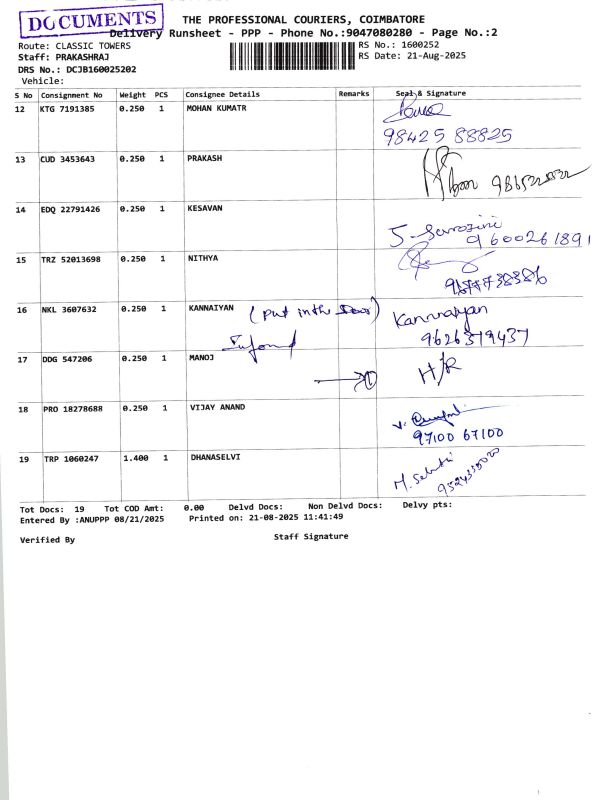 DOCUMENTS
THE PROFESSIONAL COURIERS, COIMBATORE
Delivery Runsheet - PPP - Phone No.:9047080280 - Page No.:2
Route: CLASSIC TOWERS
RS No.: 1600252
Staff: PRAKASHRAJ
RS Date: 21-Aug-2025
DRS No.: DCJB160025202
Vehicle:
S No Consignment No Weight PCS Consignee Details Remarks Seal & Signature
12 KTG 7191385 0.250 1 MOHAN KUMATR
98425 88825
13 CUD 3453643 0.250 1 PRAKASH
14 EDQ 22791426 0.250 1 KESAVAN
J. Sarojini
9600261891
15 TRZ 52013698 0.250 1 NITHYA
16 NKL 3607632 0.250 1 KANNAIYAN (Put in the Door) Kannaiyan
9626379437
17 DDG 547206 0.250 1 MANOJ H/R
18 PRO 18278688 0.250 1 VIJAY ANAND
97100 67100
19 TRP 1060247 1.400 1 DHANASELVI
Tot Docs: 19 Tot COD Amt: 0.00 Delvd Docs: Non Delvd Docs: Delvy pts:
Entered By :ANUPPP 08/21/2025 Printed on: 21-08-2025 11:41:49
Verified By Staff Signature